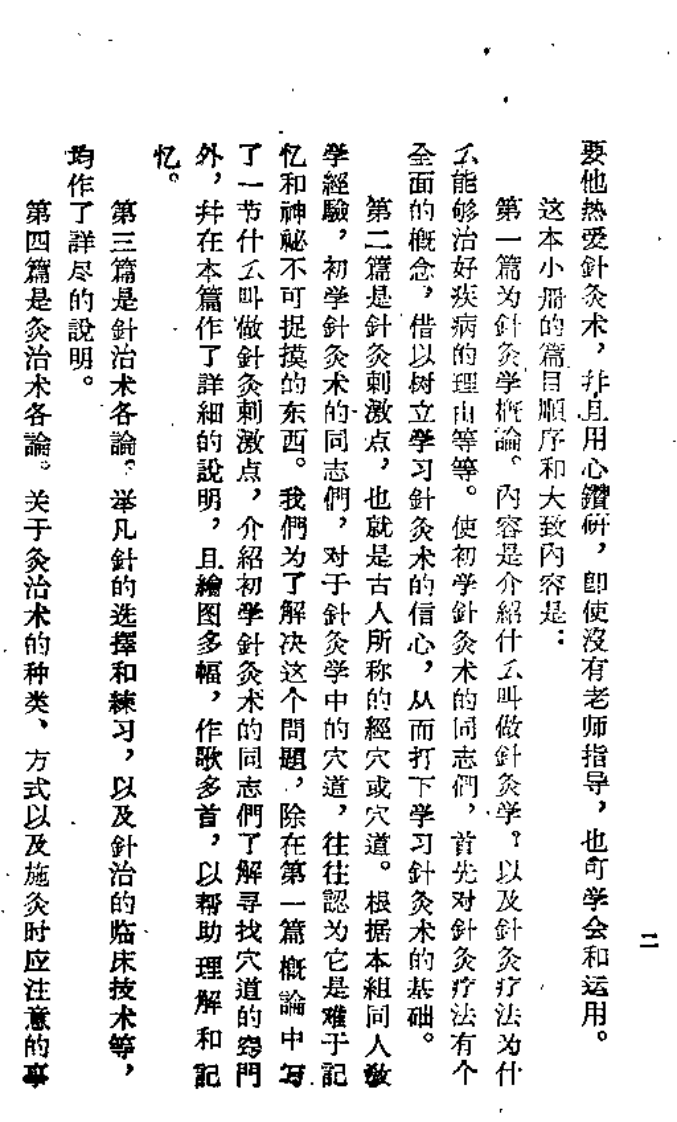 二
要他热爱針灸术，幷且用心鑽研，卽使沒有老师指导，也可学会和运用。
这本小册的篇目順序和大致內容是：
第一篇为針灸学概論。內容是介紹什么叫做針灸学？以及針灸疗法为什
么能够治好疾病的理由等等。使初学針灸术的同志們，首先对針灸疗法有个
全面的概念，借以树立学习針灸术的信心，从而打下学习針灸术的基础。
第二篇是針灸刺激点，也就是古人所称的經穴或穴道。根据本組同人教
学經驗，初学針灸术的同志們，对于針灸学中的穴道，往往認为它是难于記
忆和神祕不可捉摸的东西。我們为了解决这个問題，除在第一篇概論中写
了一节什么叫做針灸刺激点，介紹初学針灸术的同志們了解寻找穴道的窍門
外，幷在本篇作了詳細的說明，且繪图多幅，作歌多首，以帮助理解和記
忆。
第三篇是針治术各論。举凡針的选擇和練习，以及針治的临床技术等，
均作了詳尽的說明。
第四篇是灸治术各論。关于灸治术的种类、方式以及施灸时应注意的事